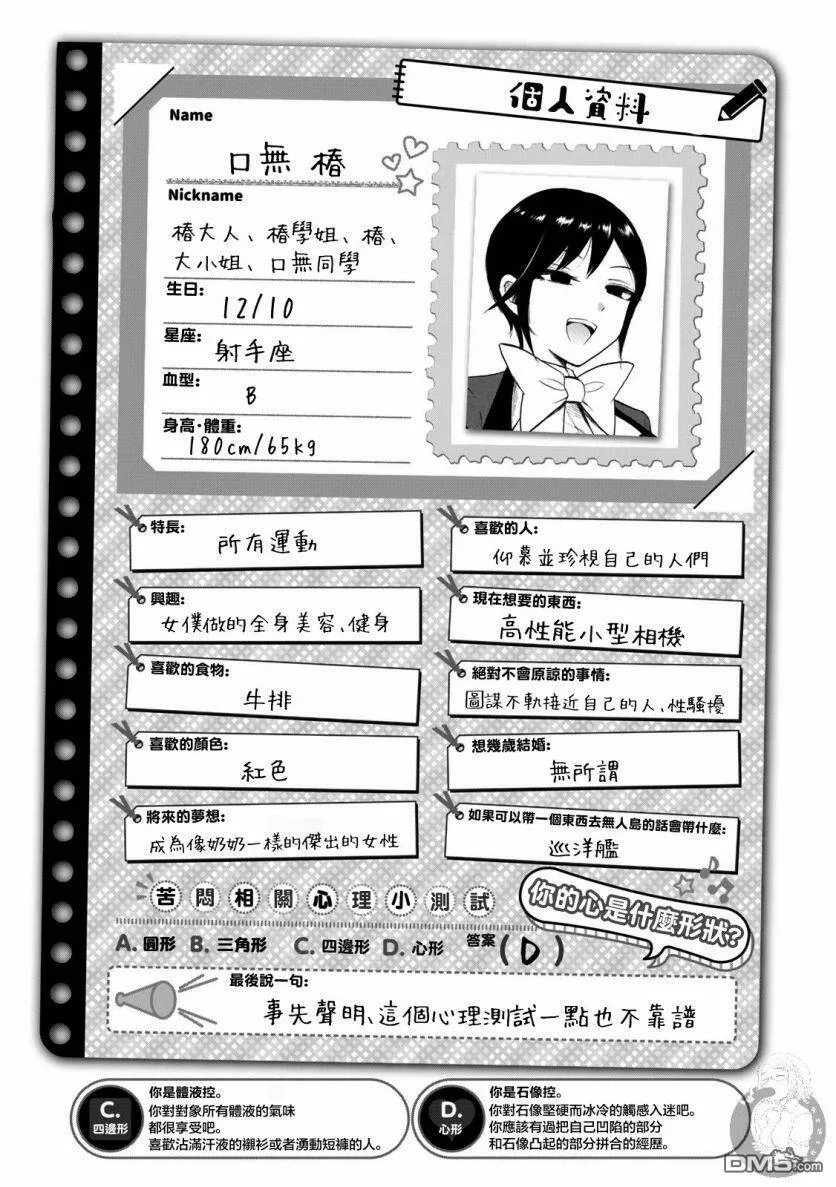 個人資料
Name
口無 椿
Nickname
椿大人、椿學姐、椿、
大小姐、口無同學
生日:
12/10
星座:
射手座
血型:
B
身高·體重:
180cm/65kg
特長:
所有運動
興趣:
女僕做的全身美容、健身
喜歡的食物:
牛排
喜歡的顏色:
紅色
將來的夢想:
成為像奶奶一樣的傑出的女性
喜歡的人:
仰慕並珍視自己的人們
現在想要的東西:
高性能小型相機
絕對不會原諒的事情:
圖謀不軌接近自己的人、性騷擾
想幾歲結婚:
無所謂
如果可以帶一個東西去無人島的話會帶什麼:
巡洋艦
苦悶相關心理小測試
你的心是什麼形狀?
A. 圓形 B. 三角形 C. 四邊形 D. 心形 答案(D)
最後說一句:
事先聲明、這個心理測試一點也不靠譜
C.
四邊形
你是體液控。
你對對象所有體液的氣味
都很享受吧。
喜歡沾滿汗液的襯衫或者湧動短褲的人。
D.
心形
你是石像控。
你對石像堅硬而冰冷的觸感入迷吧。
你應該有過把自己凹陷的部分
和石像凸起的部分拼合的經歷。
DM5.com